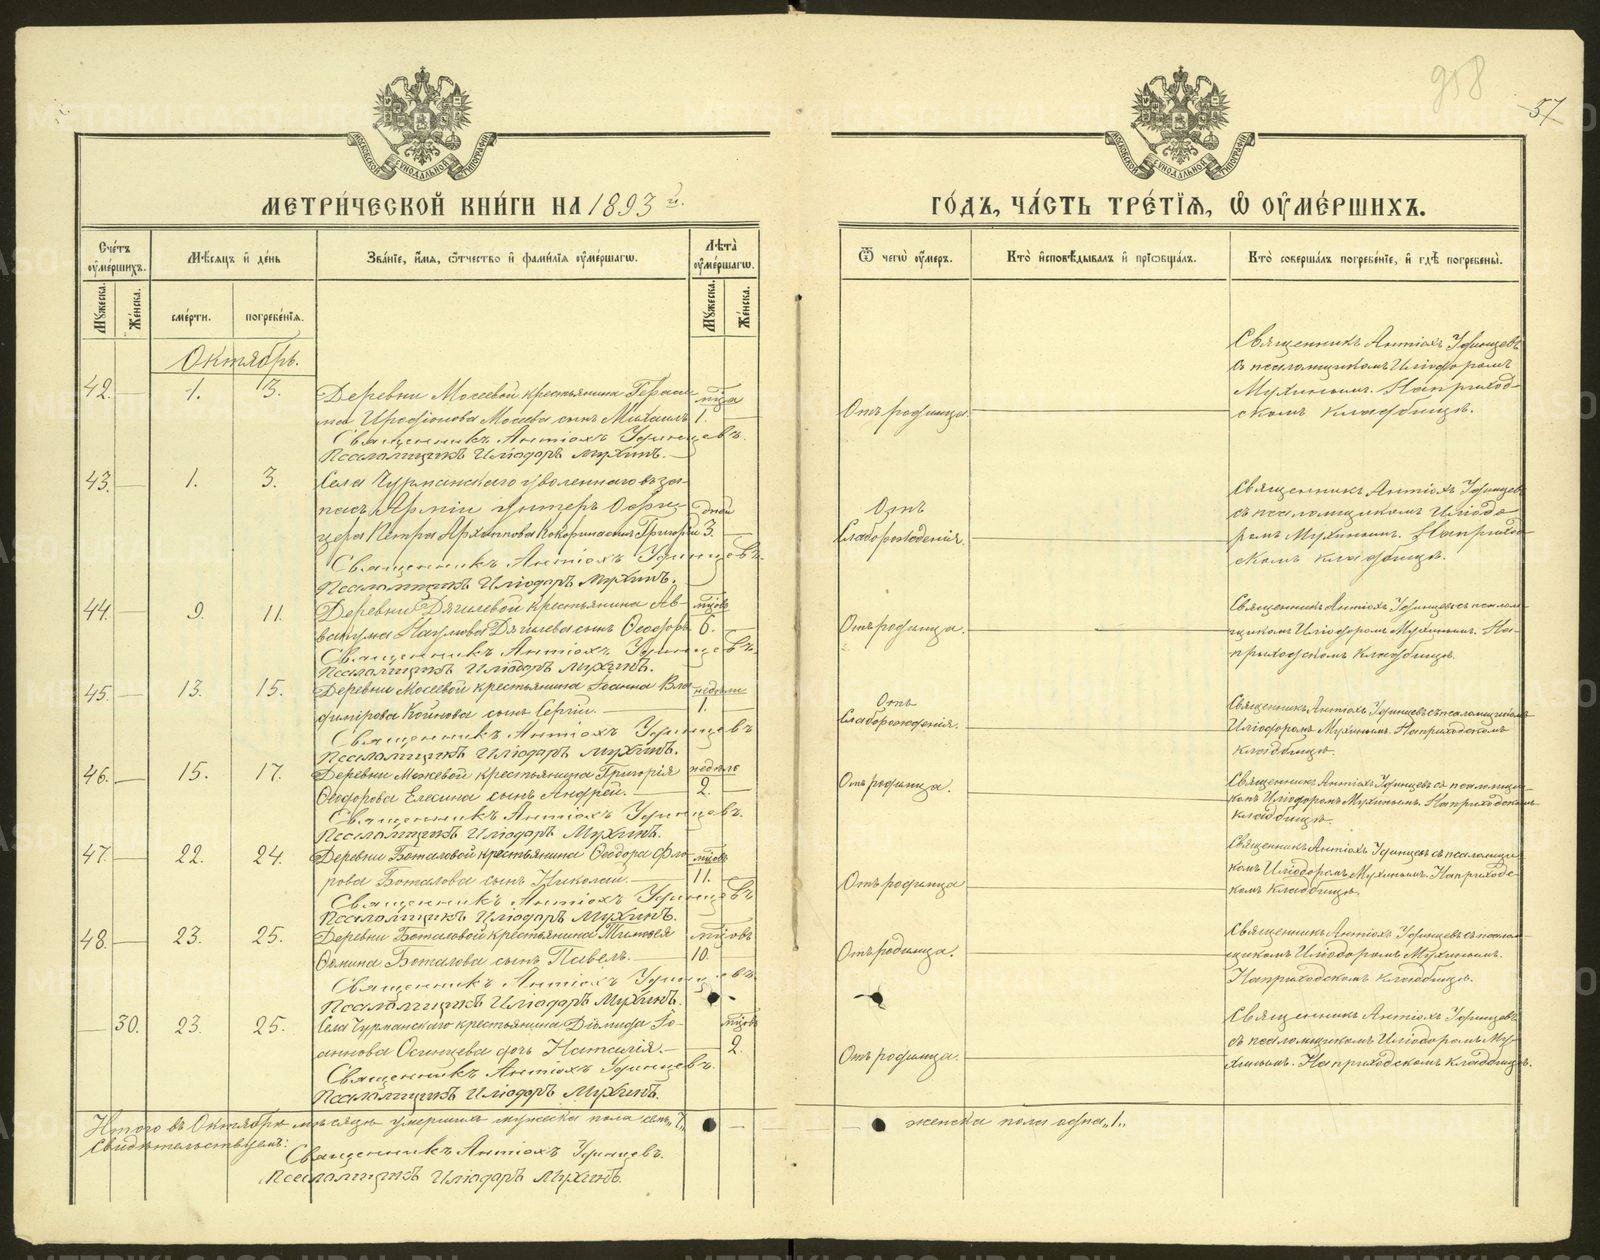 958
57
МОСКОВСКОЙ СѴНОДАЛЬНОЙ ТИПОГРАФІИ
МОСКОВСКОЙ СѴНОДАЛЬНОЙ ТИПОГРАФІИ
МЕТРИ́ЧЕСКОЙ КНИ́ГИ НА 1893 й.
ГО́ДЪ, ЧА́СТЬ ТРЕ́ТІѦ, Ѿ ОУМЕ́РШИХЪ.
Счетъ оумершихъ.
Мѣсяцъ и день
Званіе, имя, отчество и фамилія оумершагѡ.
Лѣта оумершагѡ.
Ѿ чегѡ оумеръ.
Кто исповѣдывалъ и пріѡбщалъ.
Кто совершалъ погребеніе, и гдѣ погребены.
Мужеска. Женска.
смерти. погребенія.
Мужеска. Женска.
Октябрь.
42. 1. 3. Деревни Мосеевой крестьянина Гераси- мца
ма Иродіонова Мосеева сынъ Михаилъ 1.
Священникъ Антіохъ Удинцевъ.
Псаломщикъ Иліодоръ Мухинъ.
Отъ родимца.
Священникъ Антіохъ Удинцевъ
съ псаломщикомъ Иліодоромъ
Мухинымъ. На приход-
скомъ кладбищѣ.
43. 1. 3. Села Чурманскаго уволеннаго въ за-
пасъ Арміи Унтеръ Офи- дней
цера Петра Архипова Кокорина сынъ Григорій 3.
Священникъ Антіохъ Удинцевъ.
Псаломщикъ Иліодоръ Мухинъ.
Отъ
слаборожденія.
Священникъ Антіохъ Удинцевъ
съ псаломщикомъ Иліодо-
ромъ Мухинымъ. На приход-
скомъ кладбищѣ.
44. 9. 11. Деревни Дягилевой крестьянина Ав- мцовъ
вакума Наумова Дягилева сынъ Ѳеодоръ 6.
Священникъ Антіохъ Удинцевъ.
Псаломщикъ Иліодоръ Мухинъ.
Отъ родимца.
Священникъ Антіохъ Удинцевъ съ псалом-
щикомъ Иліодоромъ Мухинымъ. На
приходскомъ кладбищѣ.
45. 13. 15. Деревни Мосеевой крестьянина Іоанна Вла- недѣли
димірова Койнова сынъ Сергій. 1.
Священникъ Антіохъ Удинцевъ
Псаломщикъ Иліодоръ Мухинъ.
Отъ
слаборожденія.
Священникъ Антіохъ Удинцевъ съ псаломщикомъ
Иліодоромъ Мухинымъ. На приходскомъ
кладбищѣ.
46. 15. 17. Деревни Можевой крестьянина Григорія недѣль
Ѳеодорова Елесина сынъ Андрей. 2.
Священникъ Антіохъ Удинцевъ.
Псаломщикъ Иліодоръ Мухинъ.
Отъ родимца.
Священникъ Антіохъ Удинцевъ съ псаломщи-
комъ Иліодоромъ Мухинымъ. На приходскомъ
кладбищѣ.
47. 22. 24. Деревни Боталовой крестьянина Ѳеодора Фло- мцовъ
рова Боталова сынъ Николай. 11.
Священникъ Антіохъ Удинцевъ
Псаломщикъ Иліодоръ Мухинъ.
Отъ родимца
Священникъ Антіохъ Удинцевъ съ псаломщи-
комъ Иліодоромъ Мухинымъ. На приходс-
комъ кладбищѣ.
48. 23. 25. Деревни Боталовой крестьянина Тимоѳея мцовъ
Ѳомина Боталова сынъ Павелъ. 10.
Священникъ Антіохъ Удинцевъ.
Псаломщикъ Иліодоръ Мухинъ.
Отъ родимца.
Священникъ Антіохъ Удинцевъ съ псалом-
щикомъ Иліодоромъ Мухинымъ.
На приходскомъ кладбищѣ.
30. 23. 25. Села Чурманскаго крестьянина Діомида Іо- мцовъ
аннова Осинцева дочь Наталія. 2.
Священникъ Антіохъ Удинцевъ.
Псаломщикъ Иліодоръ Мухинъ.
Отъ родимца.
Священникъ Антіохъ Удинцевъ
съ псаломщикомъ Иліодоромъ Му-
хинымъ. На приходскомъ кладбищѣ.
Итого въ Октябрѣ мѣсяцѣ умершихъ мужеска пола семь, 7,, женска пола одна, 1,,
Свидѣтельствуемъ:
Священникъ Антіохъ Удинцевъ.
Псаломщикъ Иліодоръ Мухинъ.